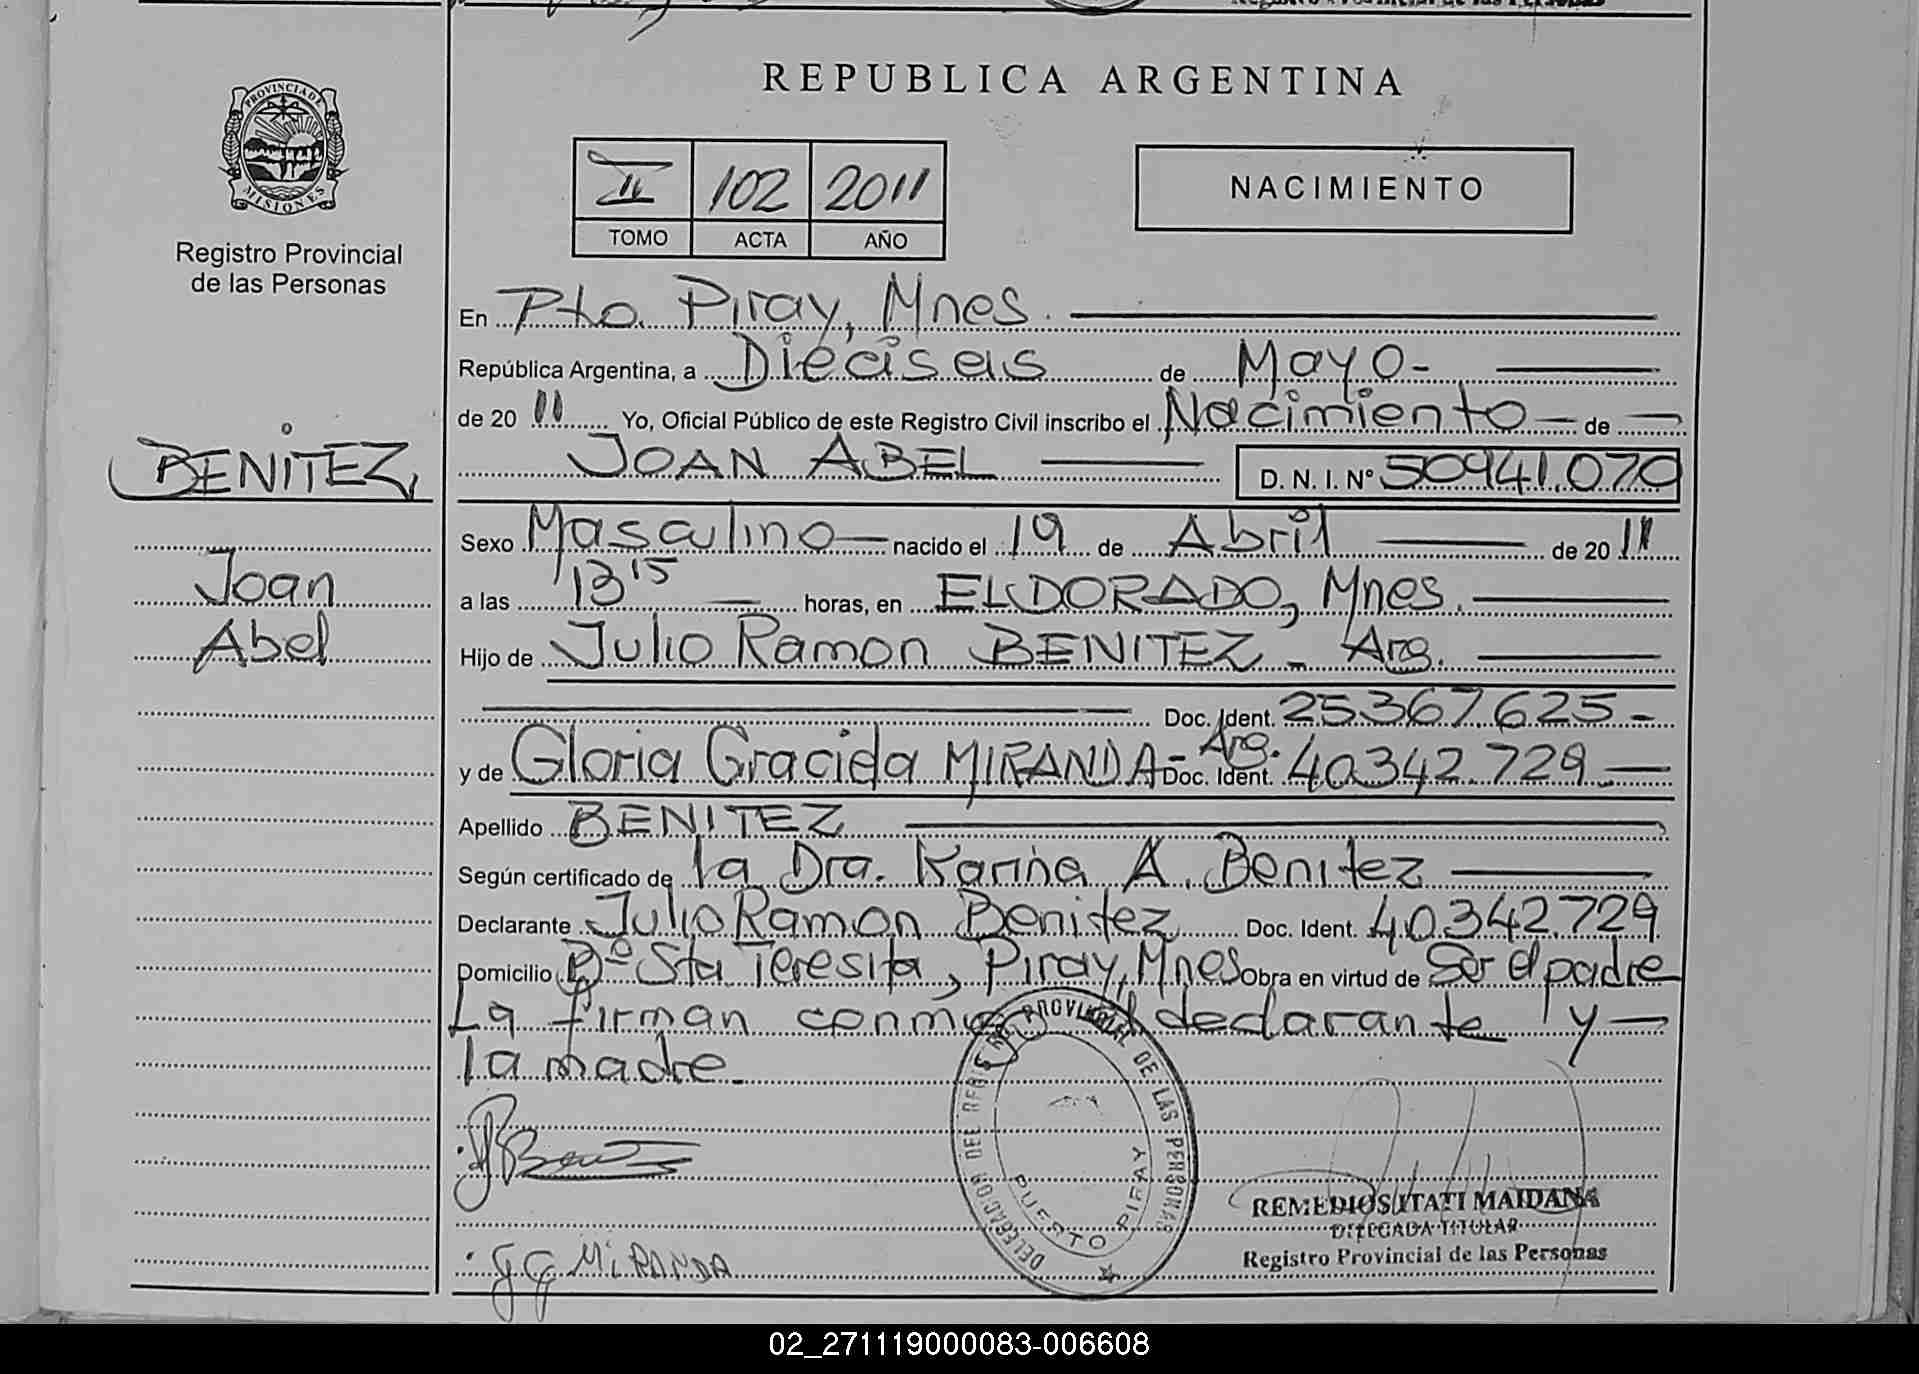 REPUBLICA ARGENTINA
PROVINCIA DE
MISIONES
Registro Provincial
de las Personas
II 102 2011
TOMO ACTA AÑO
NACIMIENTO
En Pto. Piray, Mnes.
República Argentina, a Dieciseis de Mayo-
de 20 11 Yo, Oficial Público de este Registro Civil inscribo el Nacimiento de
JOAN ABEL D. N. I. Nº 50941.070
BENITEZ,
Joan
Abel
Sexo Masculino nacido el 19 de Abril de 20 11
a las 13 15 horas, en ELDORADO, Mnes.
Hijo de Julio Ramon BENITEZ - Arg.
Doc. Ident. 25367625-
y de Gloria Graciela MIRANDA- Arg. Doc. Ident. 40342.729
Apellido BENITEZ
Según certificado de la Dra. Karina A. Benitez
Declarante Julio Ramon Benitez Doc. Ident. 40342.729
Domicilio Bº Sta Teresita, Piray, Mnes Obra en virtud de Ser el padre
La firman conmigo el declarante y
la madre.
DELEGACION DEL REGISTRO PROVINCIAL DE LAS PERSONAS
PUERTO PIRAY
G G MIRANDA
REMEDIOS ITATI MAIDANA
DELEGADA TITULAR
Registro Provincial de las Personas
02_271119000083-006608